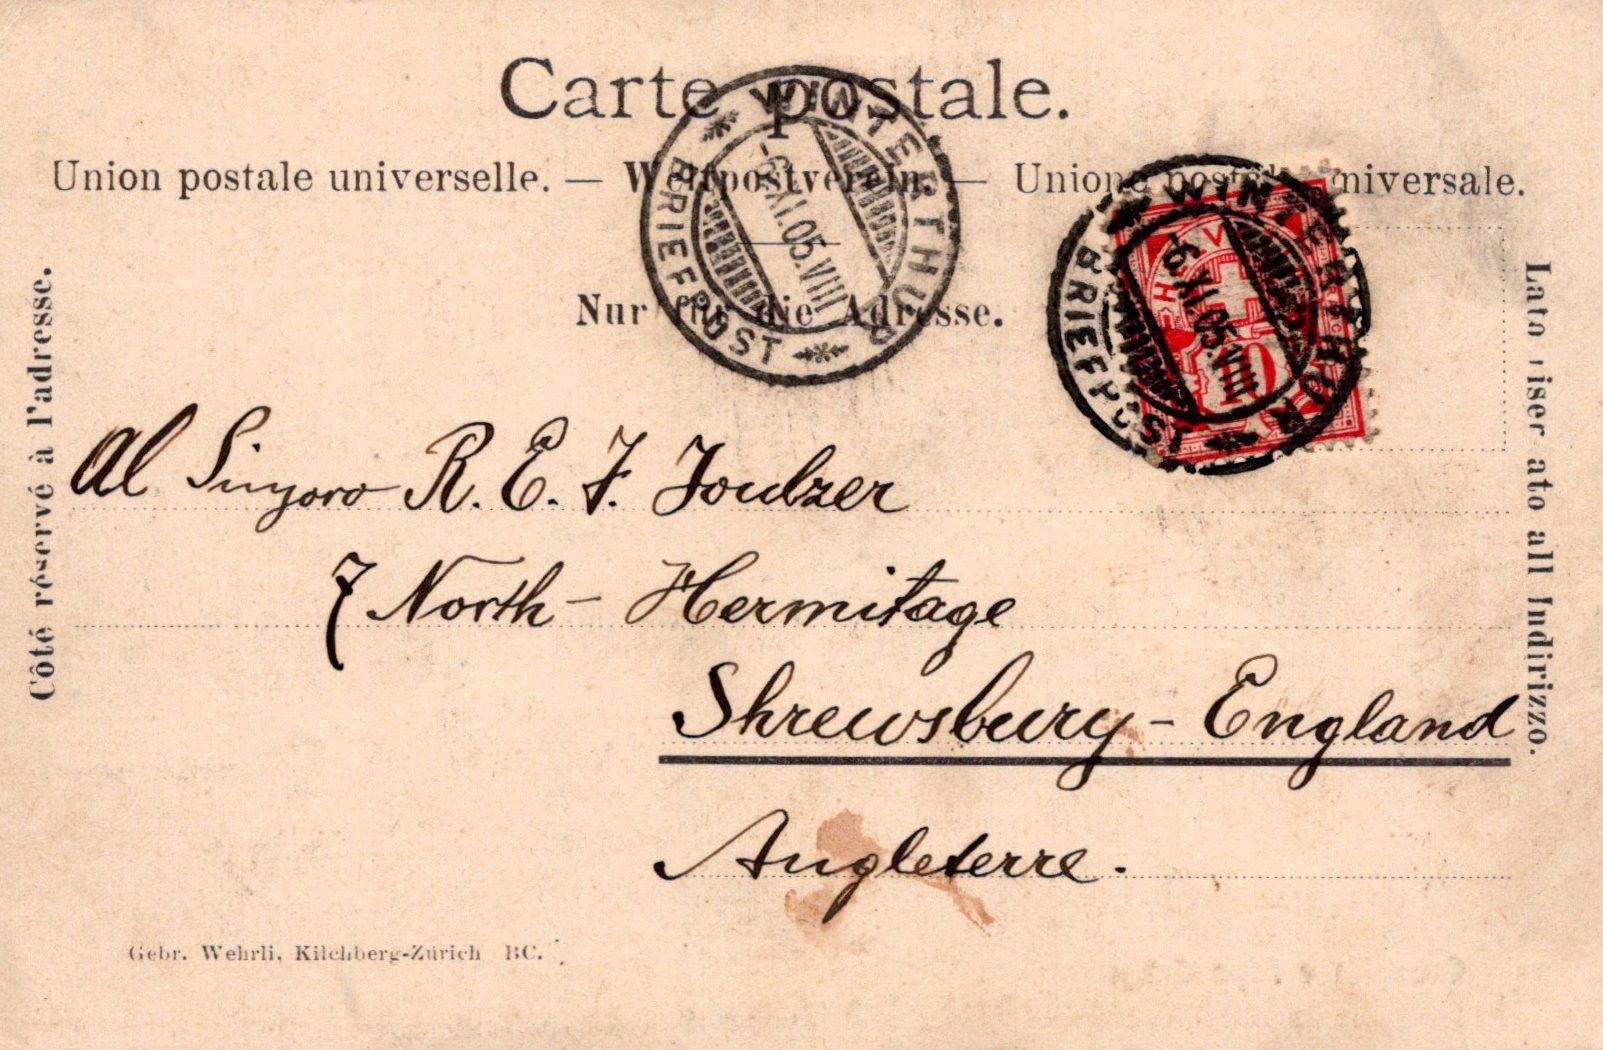 Carte postale.
Union postale universelle. — Weltpostverein. — Unione postale universale.
Nur für die Adresse.
Côté réservé à l'adresse.
Lato riservato all Indirizzo.
WINTERTHUR
-6.XI.05.VIII
BRIEFPOST
WINTERTHUR
-6.XI.05.VIII
BRIEFPOST
HELV
10
Al Singoro R. E. F. Joulzer
7 North - Hermitage
Shrewsbury - England
Angleterre.
Gebr. Wehrli, Kilchberg-Zürich BC.